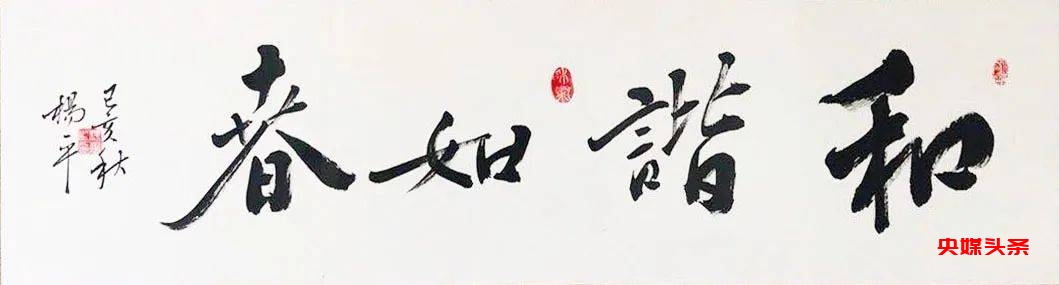 和諧如春
己亥秋
楊平
央媒头条